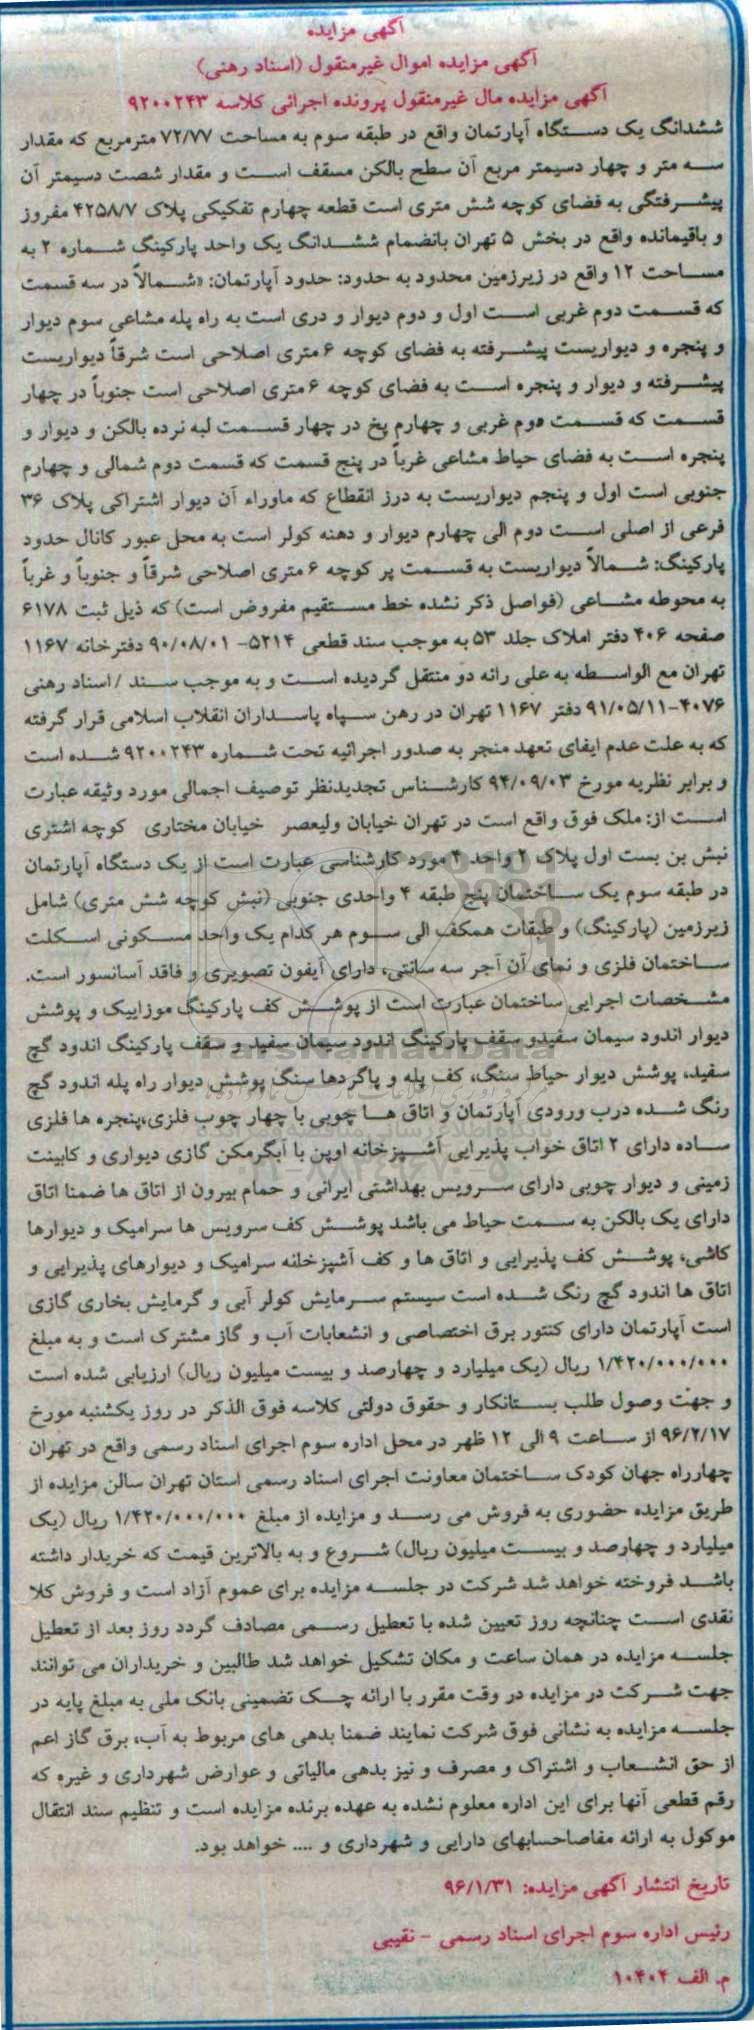 آگهی مزایده
آگهی مزایده اموال غیرمنقول (اسناد رهنی)
آگهی مزایده مال غیرمنقول پرونده اجرائی کلاسه ۹۲۰۰۲۴۳
ششدانگ یک دستگاه آپارتمان واقع در طبقه سوم به مساحت ۷۲/۷۷ مترمربع که مقدار
سه متر و چهار دسیمتر مربع آن سطح بالکن مسقف است و مقدار شصت دسیمتر آن
پیشرفتگی به فضای کوچه شش متری است قطعه چهارم تفکیکی پلاک ۴۲۵۸/۷ مفروز
و باقیمانده واقع در بخش ۵ تهران بانضمام ششدانگ یک واحد پارکینگ شماره ۲ به
مساحت ۱۲ واقع در زیرزمین محدود به حدود: حدود آپارتمان: «شمالاً در سه قسمت
که قسمت دوم غربی است اول و دوم دیوار و دری است به راه پله مشاعی سوم دیوار
و پنجره و دیواریست پیشرفته به فضای کوچه ۶ متری اصلاحی است شرقاً دیواریست
پیشرفته و دیوار و پنجره است به فضای کوچه ۶ متری اصلاحی است جنوباً در چهار
قسمت که قسمت دوم غربی و چهارم پخ در چهار قسمت لبه نرده بالکن و دیوار و
پنجره است به فضای حیاط مشاعی غرباً در پنج قسمت که قسمت دوم شمالی و چهارم
جنوبی است اول و پنجم دیواریست به درز انقطاع که ماوراء آن دیوار اشتراکی پلاک ۳۶
فرعی از اصلی است دوم الی چهارم دیوار و دهنه کولر است به محل عبور کانال حدود
پارکینگ: شمالاً دیواریست به قسمت پر کوچه ۶ متری اصلاحی شرقاً و جنوباً و غرباً
به محوطه مشاعی (فواصل ذکر نشده خط مستقیم مفروض است) که ذیل ثبت ۶۱۷۸
صفحه ۴۰۶ دفتر املاک جلد ۵۳ به موجب سند قطعی ۵۲۱۴- ۹۰/۰۸/۰۱ دفترخانه ۱۱۶۷
تهران مع الواسطه به علی رانه دو منتقل گردیده است و به موجب سند / اسناد رهنی
۴۰۷۶-۹۱/۰۵/۱۱ دفتر ۱۱۶۷ تهران در رهن سپاه پاسداران انقلاب اسلامی قرار گرفته
که به علت عدم ایفای تعهد منجر به صدور اجرائیه تحت شماره ۹۲۰۰۲۴۳ شده است
و برابر نظریه مورخ ۹۴/۰۹/۰۳ کارشناس تجدیدنظر توصیف اجمالی مورد وثیقه عبارت
است از: ملک فوق واقع است در تهران خیابان ولیعصر خیابان مختاری کوچه اشتری
نبش بن بست اول پلاک ۲ واحد ۴ مورد کارشناسی عبارت است از یک دستگاه آپارتمان
در طبقه سوم یک ساختمان پنج طبقه ۴ واحدی جنوبی (نبش کوچه شش متری) شامل
زیرزمین (پارکینگ) و طبقات همکف الی سوم هر کدام یک واحد مسکونی اسکلت
ساختمان فلزی و نمای آن آجر سه سانتی، دارای آیفون تصویری و فاقد آسانسور است.
مشخصات اجرایی ساختمان عبارت است از پوشش کف پارکینگ موزاییک و پوشش
دیوار اندود سیمان سفیدو سقف پارکینگ اندود سیمان سفید و سقف پارکینگ اندود گچ
سفید، پوشش دیوار حیاط سنگ، کف پله و پاگردها سنگ پوشش دیوار راه پله اندود گچ
رنگ شده درب ورودی آپارتمان و اتاق ها چوبی با چهار چوب فلزی،پنجره ها فلزی
ساده دارای ۲ اتاق خواب پذیرایی آشپزخانه اوپن با آبگرمکن گازی دیواری و کابینت
زمینی و دیوار چوبی دارای سرویس بهداشتی ایرانی و حمام بیرون از اتاق ها ضمنا اتاق
دارای یک بالکن به سمت حیاط می باشد پوشش کف سرویس ها سرامیک و دیوارها
کاشی، پوشش کف پذیرایی و اتاق ها و کف آشپزخانه سرامیک و دیوارهای پذیرایی و
اتاق ها اندود گچ رنگ شده است سیستم سرمایش کولر آبی و گرمایش بخاری گازی
است آپارتمان دارای کنتور برق اختصاصی و انشعابات آب و گاز مشترک است و به مبلغ
۱/۴۲۰/۰۰۰/۰۰۰ ریال (یک میلیارد و چهارصد و بیست میلیون ریال) ارزیابی شده است
و جهت وصول طلب بستانکار و حقوق دولتی کلاسه فوق الذکر در روز یکشنبه مورخ
۹۶/۲/۱۷ از ساعت ۹ الی ۱۲ ظهر در محل اداره سوم اجرای اسناد رسمی واقع در تهران
چهارراه جهان کودک ساختمان معاونت اجرای اسناد رسمی استان تهران سالن مزایده از
طریق مزایده حضوری به فروش می رسد و مزایده از مبلغ ۱/۴۲۰/۰۰۰/۰۰۰ ریال (یک
میلیارد و چهارصد و بیست میلیون ریال) شروع و به بالاترین قیمت که خریدار داشته
باشد فروخته خواهد شد شرکت در جلسه مزایده برای عموم آزاد است و فروش کلا
نقدی است چنانچه روز تعیین شده با تعطیل رسمی مصادف گردد روز بعد از تعطیل
جلسه مزایده در همان ساعت و مکان تشکیل خواهد شد طالبین و خریداران می توانند
جهت شرکت در مزایده در وقت مقرر با ارائه چک تضمینی بانک ملی به مبلغ پایه در
جلسه مزایده به نشانی فوق شرکت نمایند ضمنا بدهی های مربوط به آب، برق گاز اعم
از حق انشعاب و اشتراک و مصرف و نیز بدهی مالیاتی و عوارض شهرداری و غیره که
رقم قطعی آنها برای این اداره معلوم نشده به عهده برنده مزایده است و تنظیم سند انتقال
موکول به ارائه مفاصاحسابهای دارایی و شهرداری و .... خواهد بود.
تاریخ انتشار آگهی مزایده: ۹۶/۱/۳۱
رئیس اداره سوم اجرای اسناد رسمی - نقیبی
م. الف ۱۰۴۰۴